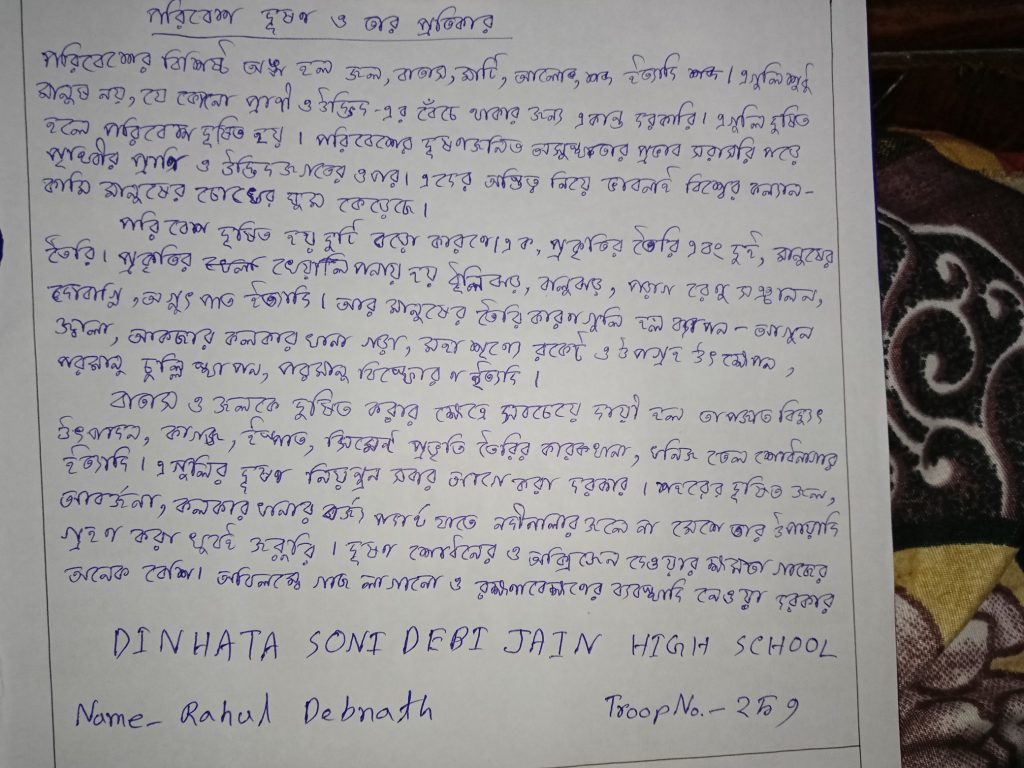 পরিবেশ দূষণ ও তার প্রতিকার
পরিবেশের বিশিষ্ট অঙ্গ হল জল, বাতাস, মাটি, আলোক, শব্দ ইত্যাদি। এগুলি শুধু
মানুষ নয়, যে কোনো প্রাণী ও উদ্ভিদ-এর বেঁচে থাকার জন্য একান্ত দরকারি। এগুলি দূষিত
হলে পরিবেশ দূষিত হয়। পরিবেশের দূষণজনিত অসুস্থতার প্রভাব সরাসরি পড়ে
পৃথিবীর প্রাণি ও উদ্ভিদজগতের ওপর। এদের অস্তিত্ব নিয়ে ভাবনাই বিশ্বের কল্যান-
কামি মানুষের চোখের ঘুম কেড়েছে।
পরিবেশ দূষিত হয় দুটি বড়ো কারণে। এক, প্রকৃতির তৈরি এবং দুই, মানুষের
তৈরি। প্রকৃতির খেয়ালিপনায় হয় ধূলিঝড়, বালুঝড়, পরাগ রেণু সঞ্চালন,
দাবাগ্নি, অগ্ন্যুৎপাত ইত্যাদি। আর মানুষের তৈরি কারণগুলি হল আগুন
জ্বালা, কলকারখানা গড়া, মহাশূণ্যে রকেট ও উপগ্রহ উৎক্ষেপন,
পরমানু চুল্লি স্থাপন, পরমানু বিস্ফোরণ ইত্যাদি।
বাতাস ও জলকে দূষিত করার ক্ষেত্রে সবচেয়ে দায়ী হল তাপজাত বিদ্যুৎ
উৎপাদন, কাগজ, ইস্পাত, সিমেন্ট প্রভৃতি তৈরির কারকখানা, খনিজ তেল শোধনাগার
ইত্যাদি। এগুলির দূষণ নিয়ন্ত্রন সবার আগে করা দরকার। শহরের দূষিত জল,
আবর্জনা, কলকারখানার বর্জ্য পদার্থ যাতে নদীনালার জলে না মেশে তার উপায়াদি
গ্রহণ করা খুবই জরুরি। দূষণ শোধনের ও অক্সিজেন দেওয়ার ক্ষমতা গাছের
অনেক বেশি। অবিলম্বে গাছ লাগানো ও রক্ষণাবেক্ষণের ব্যবস্থাদি নেওয়া দরকার
DINHATA SONI DEBI JAIN HIGH SCHOOL
Name- Rahul Debnath Troop No.-